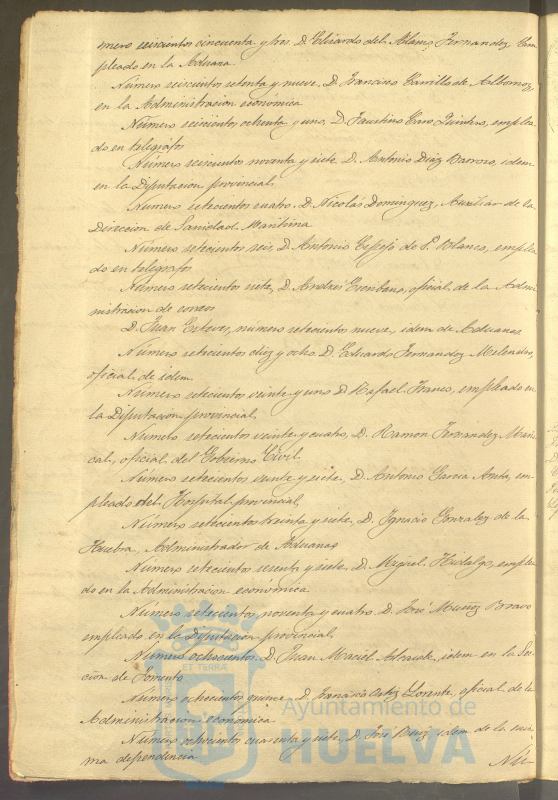 mero seiscientos cincuenta y tres. D. Eduardo del Alamo Fernandez Em-
pleado en la Aduana
Número seiscientos setenta y nueve, D. Francisco Carrillo de Albornoz,
en la Administracion económica
Número seiscientos ochenta y uno, D. Faustino Caro Quintero, emplea-
do en telégrafos
Número seiscientos noventa y siete D. Antonio Diaz Barroso, idem
en la Diputacion provincial,
Número setecientos cuatro D. Nicolás Dominguez, Auxiliar de la
Direccion de Sanidad Maritima
Número setecientos seis, D. Antonio de Sn. Blanco, emplea
do en telégrafos
Número setecientos siete, D. Andrés Escribano, oficial de la Admi-
nistracion de correos
D. Juan Esteves, número setecientos nueve, idem de Aduanas
Número setecientos diez y ocho D. Eduardo Fernandez Melendez,
oficial de idem
Número setecientos veinte y uno D. Rafael Franco, empleado en
la Diputacion provincial,
Número setecientos veinte y cuatro, D. Ramon Fernandez Maris-
cal, oficial del Gobierno Civil
Número setecientos veinte y siete, D. Antonio Garcia em-
pleado del Hospital provincial,
Número setecientos treinta y siete, D. Ignacio Gonzalez de la
Huebra, Administrador de Aduanas
Número setecientos sesenta y siete D. Miguel Hidalgo, emplea
do en la Administracion económica
Número setecientos noventa y cuatro D. José Muñoz Bravo
empleado en la Diputacion provincial,
Número ochocientos. D. Juan Maciel idem en la Sec-
cion de Fomento
Número ochocientos quince, D. Francisco Ortiz Llorente, oficial de la
Administracion económica
Número ochocientos cuarenta y siete D. José Ruiz, idem de la mis-
ma dependencia
Nú-
ET TERRÆ
Ayuntamiento de
HUELVA